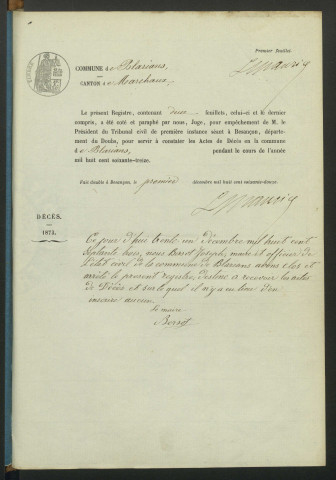 Premier feuillet
COMMUNE d e Blarians,
CANTON d e Marchaux.
Le présent Registre, contenant deux feuillets, celui-ci et le dernier
compris, a été coté et paraphé par nous, Juge, pour empêchement de M. le
Président du Tribunal civil de première instance séant à Besançon, départe-
ment du Doubs, pour servir à constater les Actes de Décès en la commune
d e Blarians, pendant le cours de l'année
mil huit cent soixante-treize.
Fait double à Besançon, le premier décembre mil huit cent soixante-douze.
DÉCÈS.
1873.
Ce jour d'hui trente un Décembre mil huit cent
septante trois, nous Joseph, maire et officier de
l'état civil de la commune de Blarians avons clos et
arrêté le présent registre destiné à recevoir les actes
de Décès et sur lequel il n'y a eu lieu d'en
inscrire aucun.
Le maire